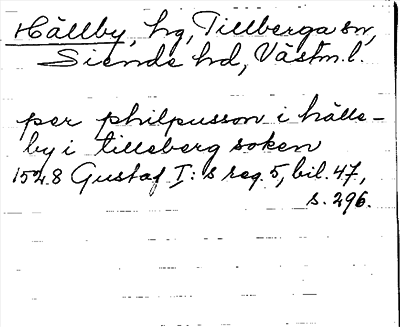 Hällby, hg, Tillberga sn,
Siende hd, Västm. l.
per philpusson i hälle-
by i tilleberg soken
1528 Gustaf I:s reg. 5, bil. 47,
s. 296.